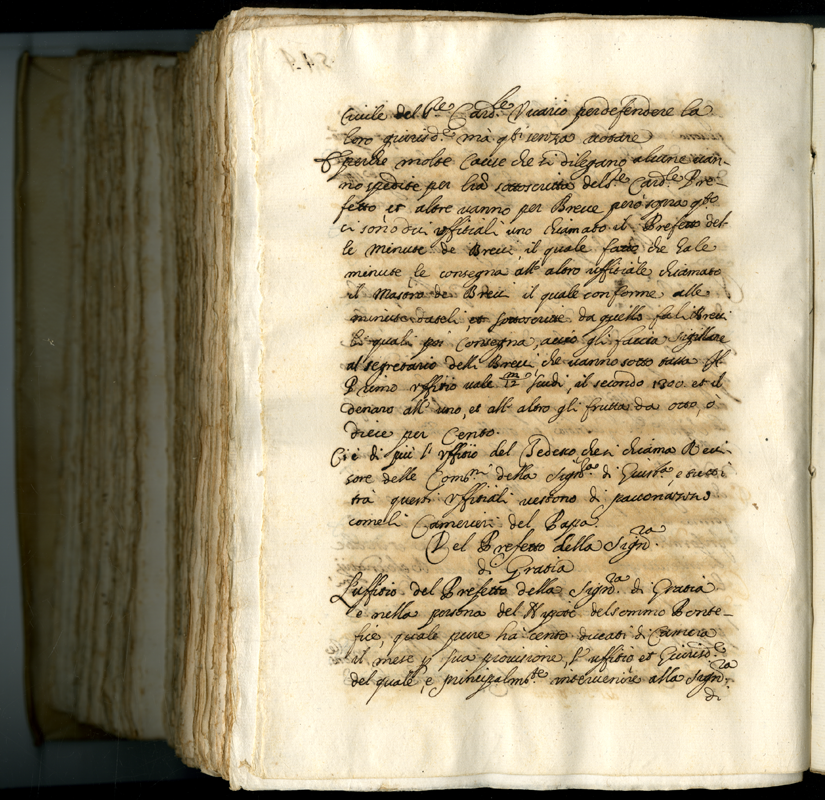 Civile del S.re Card.le Vicario per defendere la
loro giurisd.e mà q.ti senza votare
E perche molte Cause che si dilegano alcune van-
no spedite per la sottoscritta del S.re Card.le Pre-
fetto et altre vanno per Breve pero sopra q.to
ci sono dui uffitiali uno chiamato il Prefetto del-
le Minute de Brevi, il quale fatto che ha le
minute, le consegna all'altro uffitiale chiamato
il Mastro de Brevi il quale conforme alle
minute dateli, et sottoscritte da quello fa li Brevi
li quali poi consegna, acciò gli faccia sigillare
al segretario delli Brevi che vanno sotto tassa Il
Primo uffitio vale m/12 scudi, il secondo 1800 et il
denaro all'uno, et all'altro gli frutta da otto, ò
diece per Cento.
Ci è di più l'uffitio del Tedesco che si chiama Revi-
sore delle Com.ni della Sign.ra di Giust.a, e tutti
trà questi uffitiali vestono di paconazzo
come li Camerieri del Papa.
Del Prefetto della Sign.ra
di Gratia
L'uffitio del Prefetto della Sign.ra di Gratia
e nella persona del Nipote del sommo Ponte-
fice, quale pure hà cento ducati di Camera
il mese p sua provisione, l'uffitio et Giurisd.e
del quale, e principalm.te intervenire alla Sign.ra
di